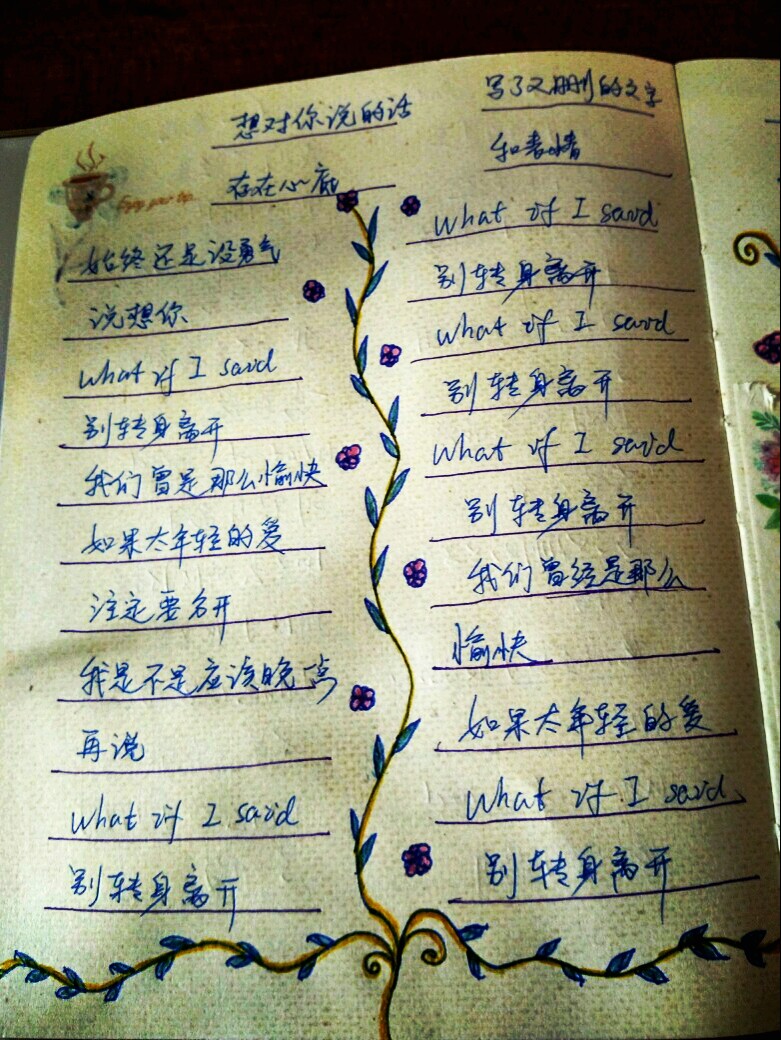 想对你说的话
存在心底
始终还是没勇气
说想你
What if I said
别转身离开
我们曾是那么愉快
如果太年轻的爱
注定要分开
我是不是应该晚一点
再说
What if I said
别转身离开
写了又删的文字
和表情
What if I said
别转身离开
What if I said
别转身离开
What if I said
别转身离开
我们曾经是那么
愉快
如果太年轻的爱
What if I said
别转身离开